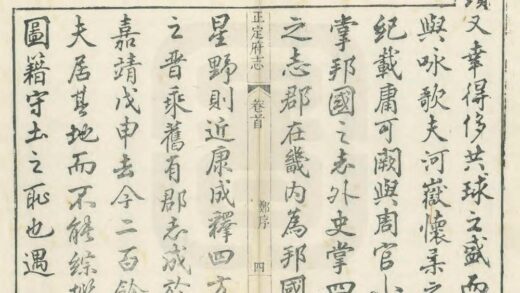 又幸得侈共球之盛而
與咏歌夫河嶽懷柔之
紀載庸可闕與周官小
掌邦國之志外史掌四
之志郡在畿內為邦國
正定府志 卷首 鄭序 四
星野則近康成釋四方
之晉乘舊有郡志成於
嘉靖戊申去今二百餘
夫居其地而不能綜
圖籍守土之恥也遇